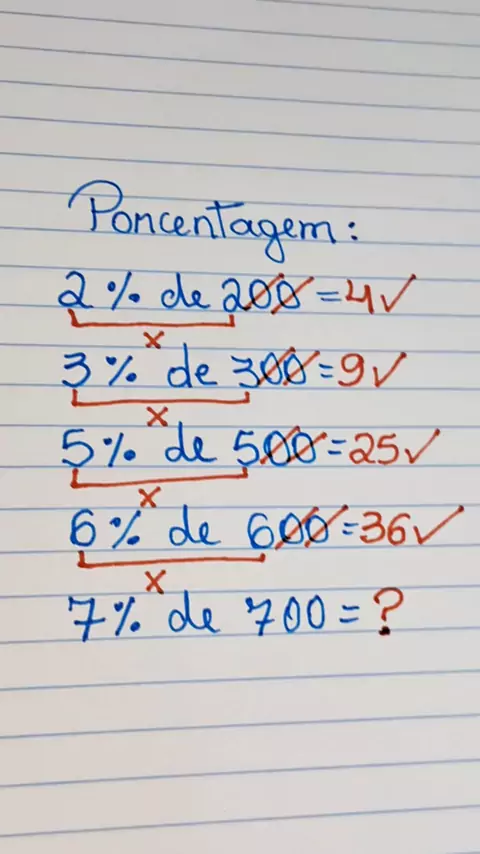 Porcentagem:
2% de 200=4✓
x
3% de 300=9✓
x
5% de 500=25✓
x
6% de 600=36✓
x
7% de 700=?